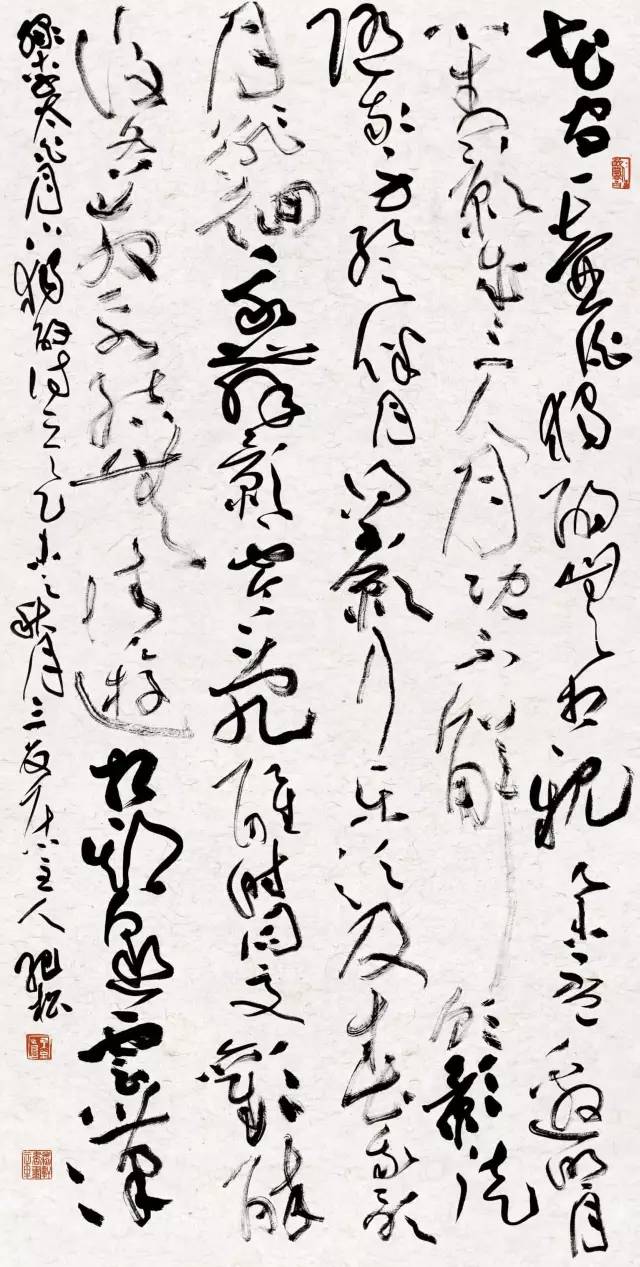 花間一壺酒獨酌無相親舉杯邀明月
對影成三人月既不解飲影徒
隨我身暫伴月將影行樂須及春我歌
月徘徊我舞影零亂醒時同交歡醉
後各分散永結無情遊相期邈雲漢
李太白月下獨酌詩之一乙未之秋月三主人 松